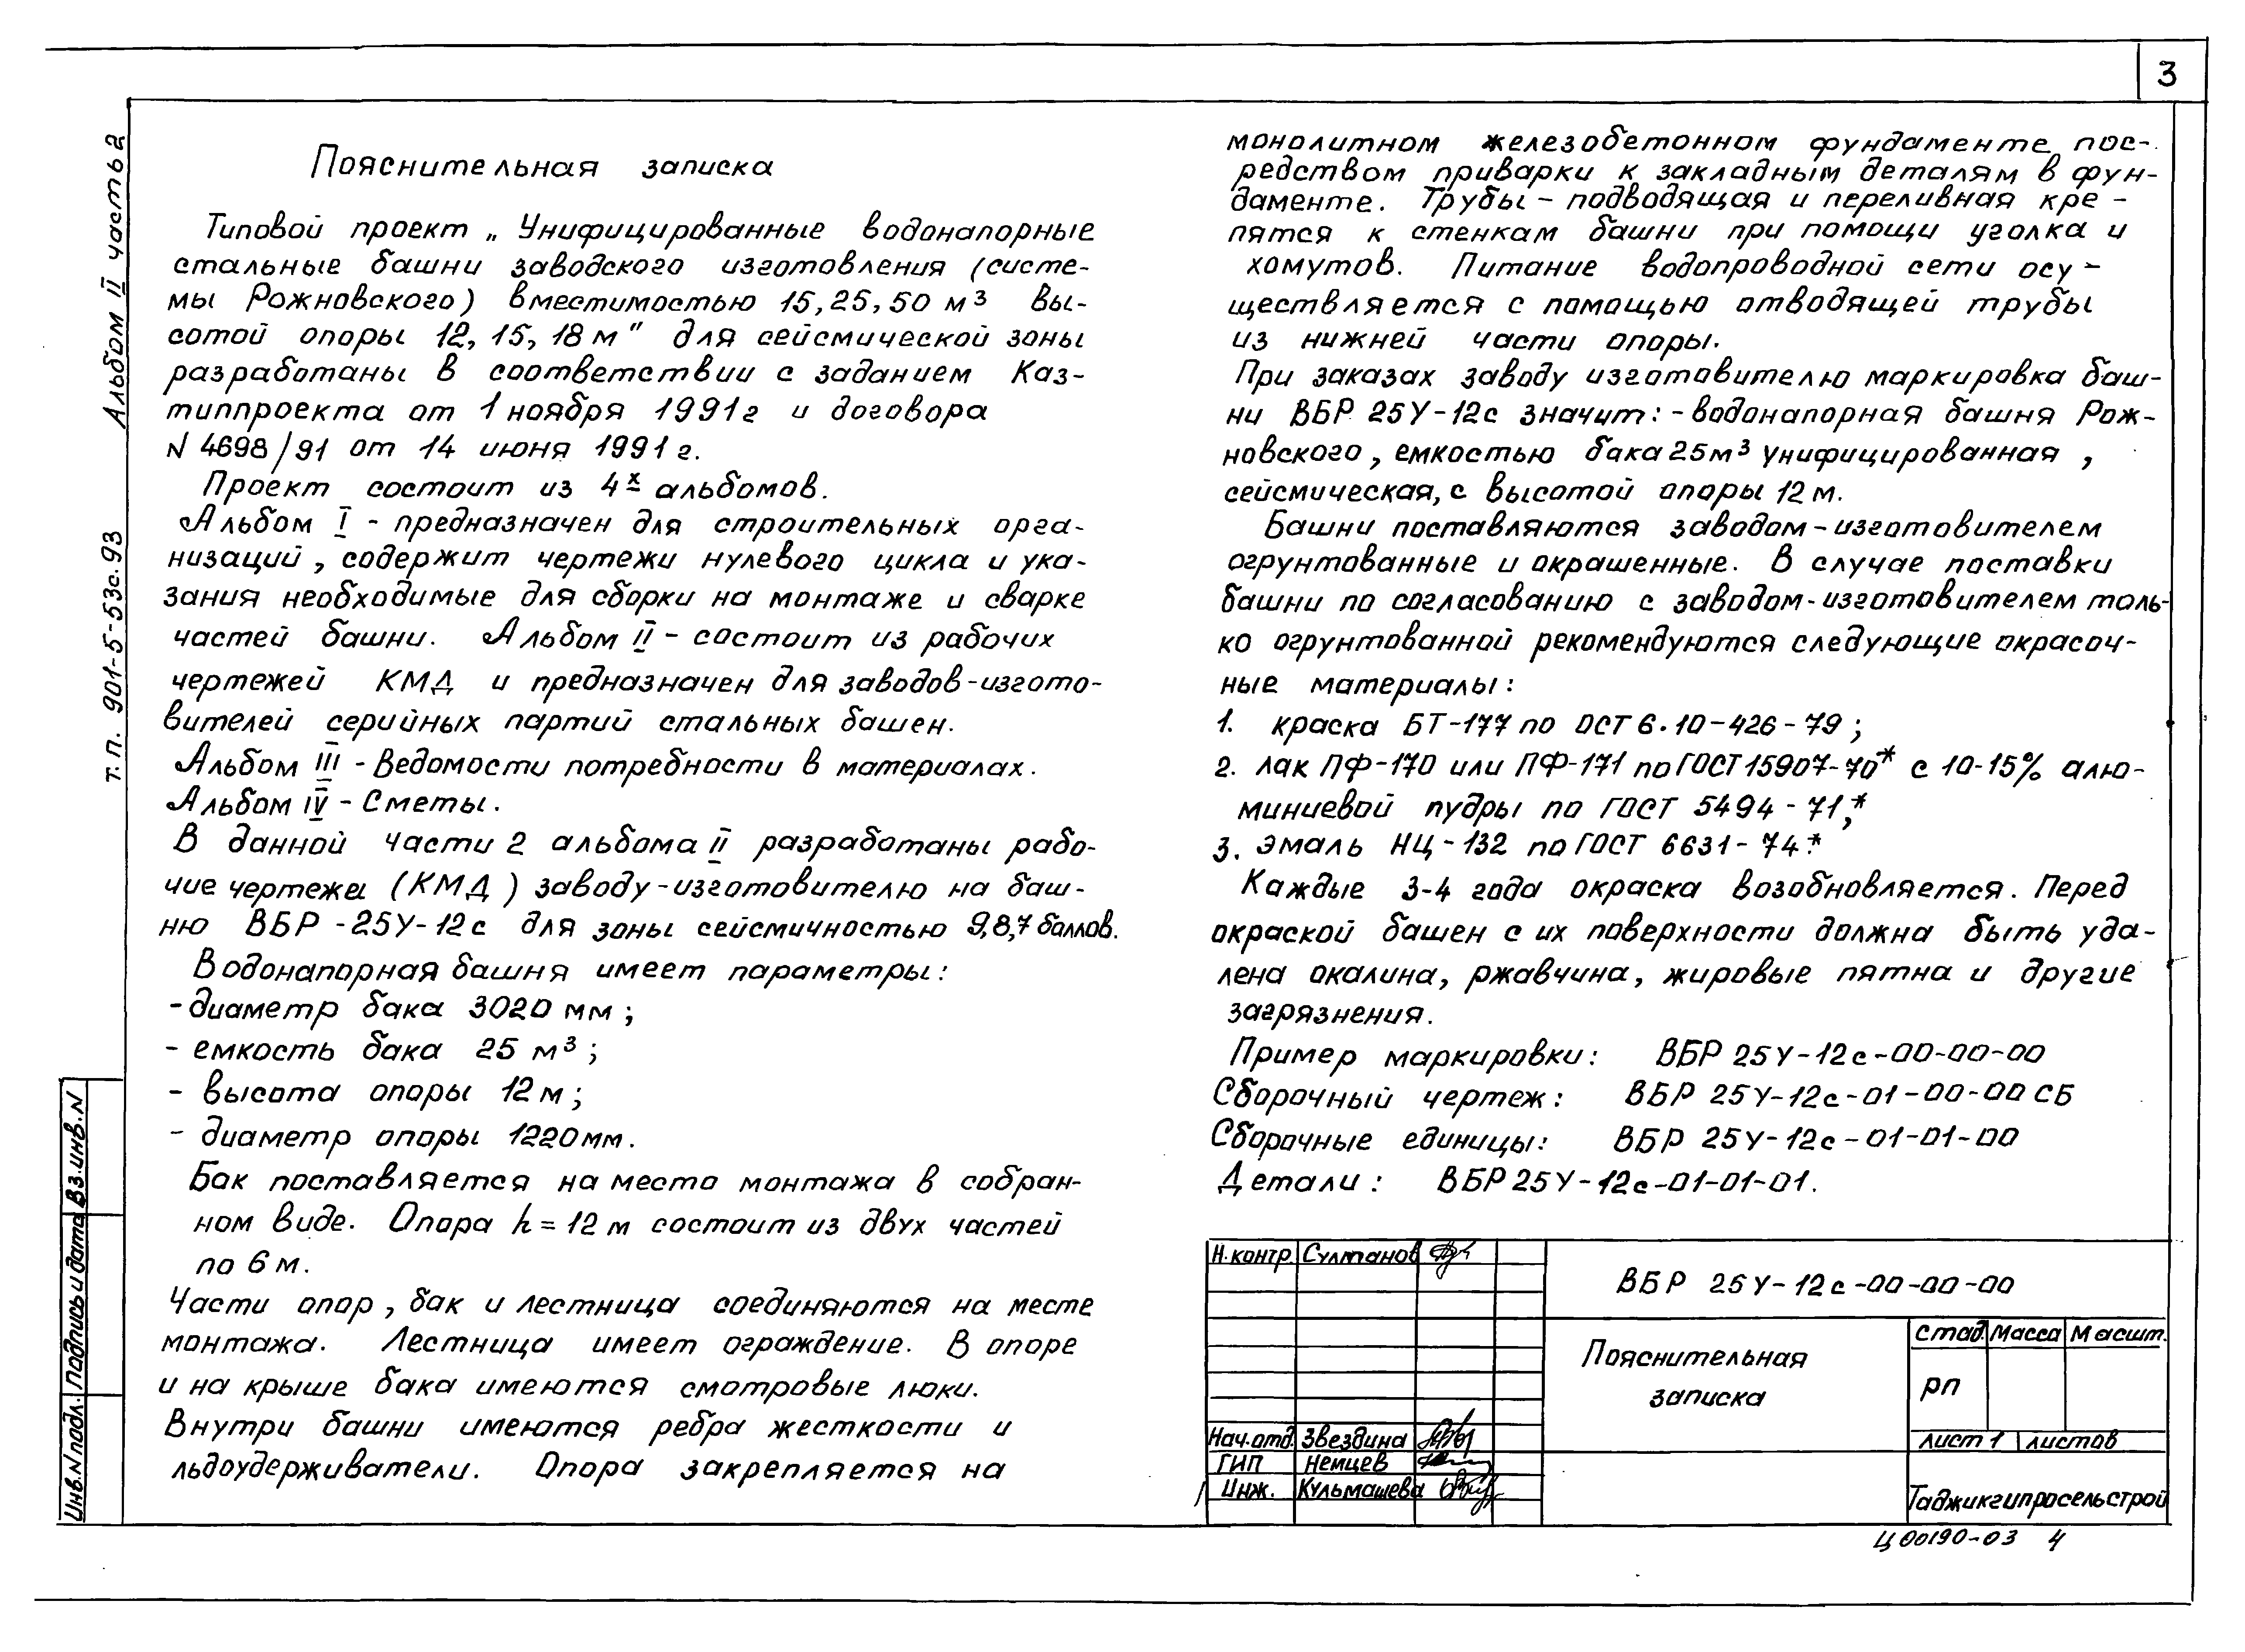 3
Альбом II часть 2
т.п. 901-5-53с.93
Пояснительная записка
Типовой проект „Унифицированные водонапорные
стальные башни заводского изготовления (систе-
мы Рожновского) вместимостью 15, 25, 50 м³ вы-
сотой опоры 12, 15, 18 м" для сейсмической зоны
разработаны в соответствии с заданием Каз-
типпроекта от 1 ноября 1991г и договора
N 4698/91 от 14 июня 1991 г.
Проект состоит из 4х альбомов.
Альбом I - предназначен для строительных орга-
низаций, содержит чертежи нулевого цикла и ука-
зания необходимые для сборки на монтаже и сварке
частей башни. Альбом II - состоит из рабочих
чертежей КМД и предназначен для заводов-изгото-
вителей серийных партий стальных башен.
Альбом III - Ведомости потребности в материалах.
Альбом IV - Сметы.
В данной части 2 альбома II разработаны рабо-
чие чертежи (КМД) заводу-изготовителю на баш-
ню ВБР-25У-12с для зоны сейсмичностью 9,8,7 баллов.
Водонапорная башня имеет параметры:
- диаметр бака 3020 мм;
- емкость бака 25 м³;
- высота опоры 12 м;
- диаметр опоры 1220 мм.
Бак поставляется на место монтажа в собран-
ном виде. Опора h = 12 м состоит из двух частей
по 6 м.
Части опор, бак и лестница соединяются на месте
монтажа. Лестница имеет ограждение. В опоре
и на крыше бака имеются смотровые люки.
Внутри башни имеются ребра жесткости и
льдоудерживатели. Опора закрепляется на
монолитном железобетонном фундаменте пос-
редством приварки к закладным деталям в фун-
даменте. Трубы - подводящая и переливная кре-
пятся к стенкам башни при помощи уголка и
хомутов. Питание водопроводной сети осу-
ществляется с помощью отводящей трубы
из нижней части опоры.
При заказах заводу изготовителю маркировка баш-
ни ВБР 25У-12с значит: - водонапорная башня Рож-
новского, емкостью бака 25м³ унифицированная,
сейсмическая, с высотой опоры 12 м.
Башни поставляются заводом-изготовителем
огрунтованные и окрашенные. В случае поставки
башни по согласованию с заводом-изготовителем толь-
ко огрунтованной рекомендуются следующие окрасоч-
ные материалы:
1. краска БТ-177 по ОСТ 6.10-426-79;
2. лак ПФ-170 или ПФ-171 по ГОСТ 15907-70* с 10-15% алю-
миниевой пудры по ГОСТ 5494-71*,
3. эмаль НЦ-132 по ГОСТ 6631-74*.
Каждые 3-4 года окраска возобновляется. Перед
окраской башен с их поверхности должна быть уда-
лена окалина, ржавчина, жировые пятна и другие
загрязнения.
Пример маркировки: ВБР 25У-12с-00-00-00
Сборочный чертеж: ВБР 25У-12с-01-00-00 СБ
Сборочные единицы: ВБР 25У-12с-01-01-00
Детали: ВБР 25У-12с-01-01-01.
Н.контр. Султанов
ВБР 25У-12с-00-00-00
Пояснительная
записка
Стад. Масса Масшт.
рп
лист 1 листов
Нач.отд. Звездина
ГИП Немцев
Инж. Кульмашева
Таджикгипросельстрой
Ц00190-03 4
Инв.N подл. Подпись и дата Вз.инв.N